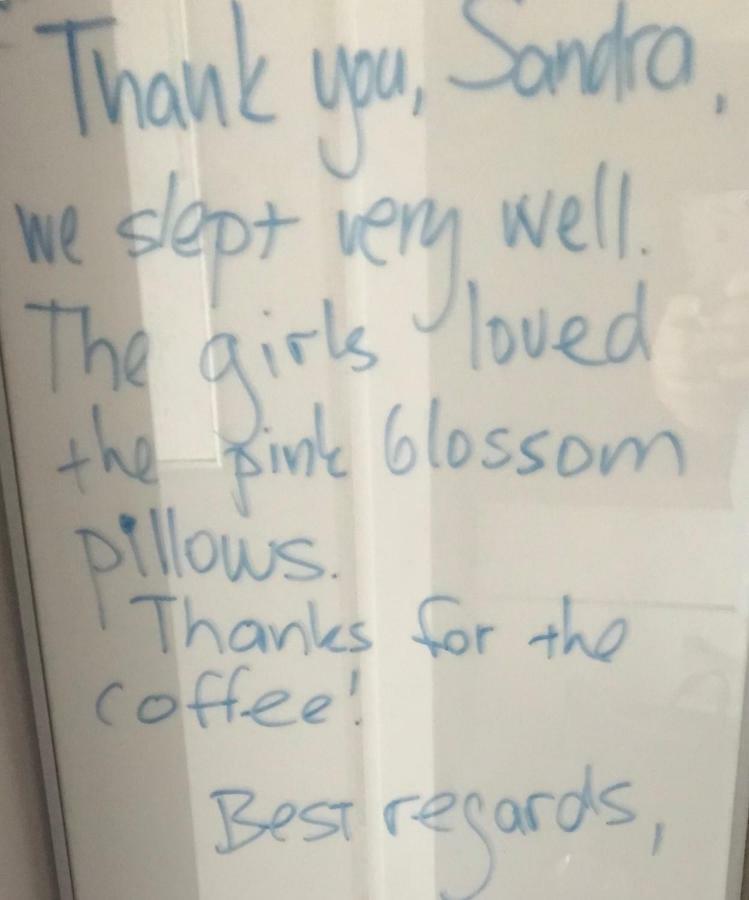 Thank you, Sandra,
we slept very well.
The girls loved
the pink blossom
pillows.
Thanks for the
coffee!
Best regards,